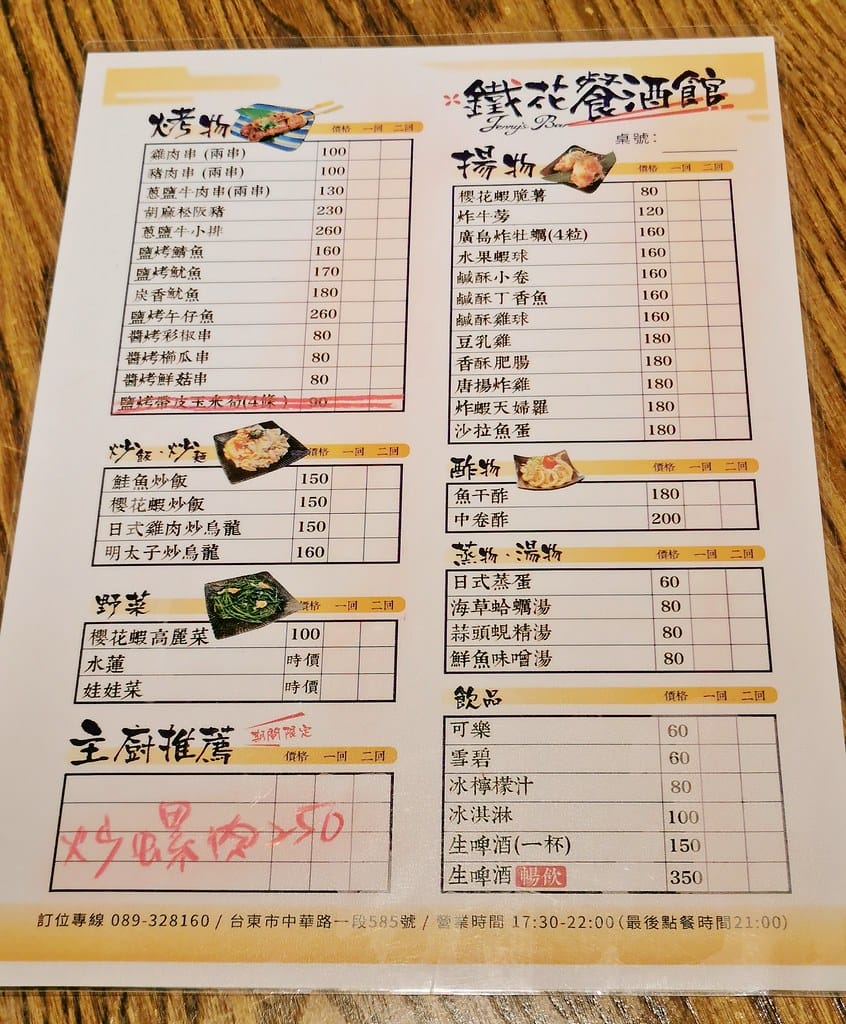 烤物 價格 一回 二回
雞肉串 (兩串) 100
豬肉串 (兩串) 100
蔥鹽牛肉串(兩串) 130
胡麻松阪豬 230
蔥鹽牛小排 260
鹽烤鯖魚 160
鹽烤魷魚 170
炭香魷魚 180
鹽烤午仔魚 260
醬烤彩椒串 80
醬烤櫛瓜串 80
醬烤鮮菇串 80
鹽烤帶皮玉米筍(4條) 90
炒飯·炒麵 價格 一回 二回
鮭魚炒飯 150
櫻花蝦炒飯 150
日式雞肉炒烏龍 150
明太子炒烏龍 160
野菜 價格 一回 二回
櫻花蝦高麗菜 100
水蓮 時價
娃娃菜 時價
主廚推薦 期間限定 價格 一回 二回
炒螺肉250
鐵花餐酒館
Jerry's Bar
桌號:
揚物 價格 一回 二回
櫻花蝦脆薯 80
炸牛蒡 120
廣島炸牡蠣(4粒) 160
水果蝦球 160
鹹酥小卷 160
鹹酥丁香魚 160
鹹酥雞球 160
豆乳雞 180
香酥肥腸 180
唐揚炸雞 180
炸蝦天婦羅 180
沙拉魚蛋 180
酢物 價格 一回 二回
魚干酢 180
中卷酢 200
蒸物·湯物 價格 一回 二回
日式蒸蛋 60
海草蛤蠣湯 80
蒜頭蜆精湯 80
鮮魚味噌湯 80
飲品 價格 一回 二回
可樂 60
雪碧 60
冰檸檬汁 80
冰淇淋 100
生啤酒(一杯) 150
生啤酒 暢飲 350
訂位專線 089-328160 / 台東市中華路一段585號 / 營業時間 17:30-22:00(最後點餐時間21:00)